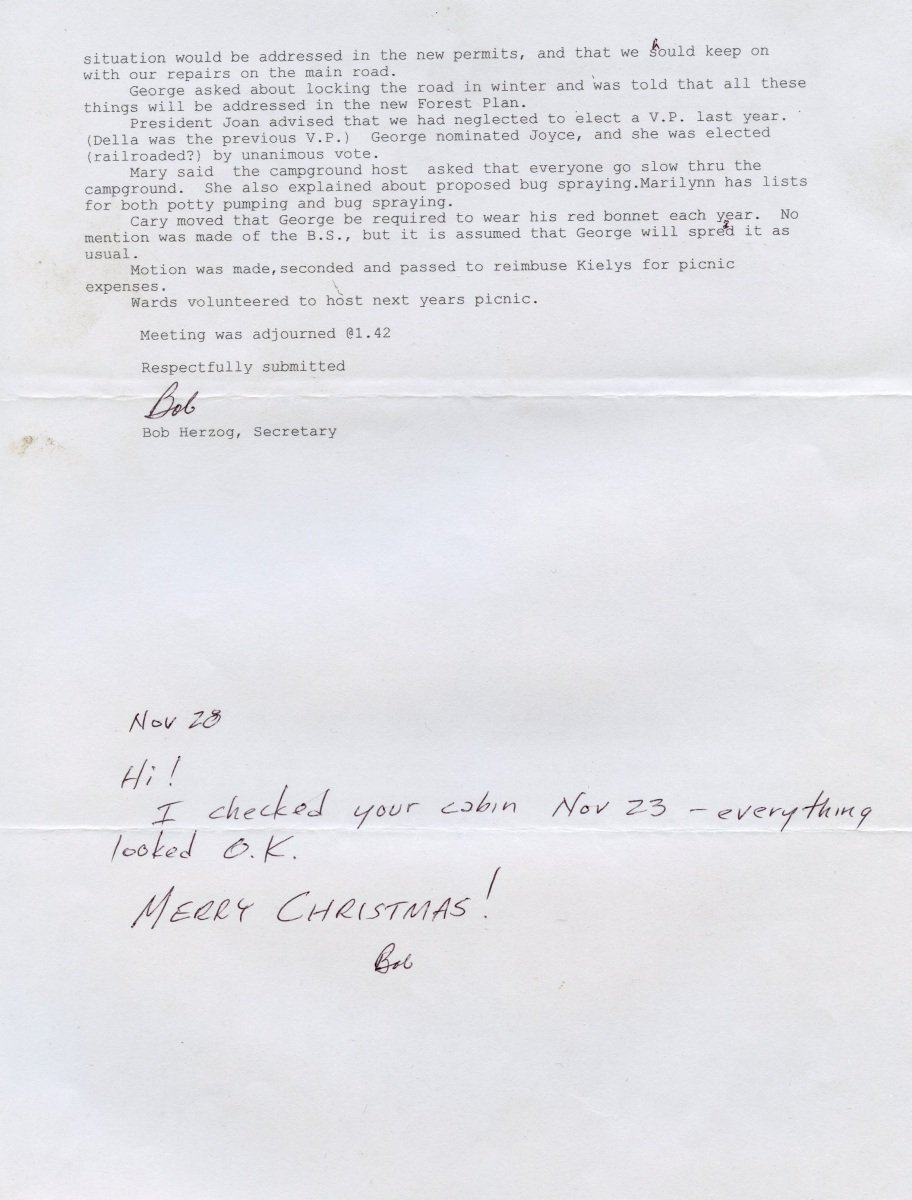 situation would be addressed in the new permits, and that we should keep on
with our repairs on the main road.
George asked about locking the road in winter and was told that all these
things will be addressed in the new Forest Plan.
President Joan advised that we had neglected to elect a V.P. last year.
(Della was the previous V.P.)  George nominated Joyce, and she was elected
(railroaded?) by unanimous vote.
Mary said  the campground host  asked that everyone go slow thru the
campground.  She also explained about proposed bug spraying.Marilynn has lists
for both potty pumping and bug spraying.
Cary moved that George be required to wear his red bonnet each year.  No
mention was made of the B.S., but it is assumed that George will spread it as
usual.
Motion was made,seconded and passed to reimbuse Kielys for picnic
expenses.
Wards volunteered to host next years picnic.
Meeting was adjourned @1.42
Respectfully submitted
Bob
Bob Herzog, Secretary
Nov 28
Hi!
I checked your cabin Nov 23 - everything
looked O.K.
MERRY CHRISTMAS!
Bob